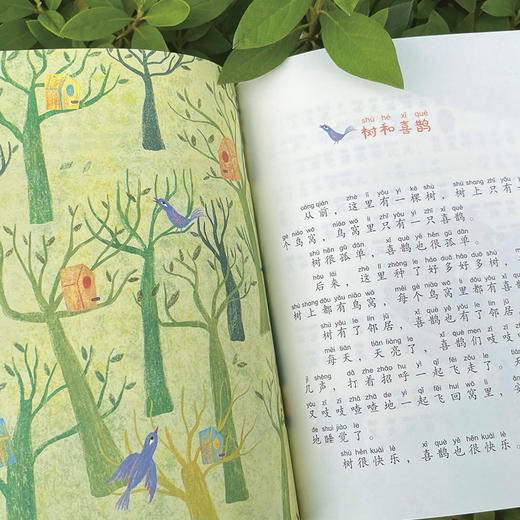 shù hé xǐ què
树和喜鹊
cóng qián zhè lǐ yǒu yì kē shù shù shang zhǐ yǒu
从前，这里有一棵树，树上只有
gè niǎo wō niǎo wō lǐ zhǐ yǒu yì zhī xǐ què
个鸟窝，鸟窝里只有一只喜鹊。
shù hěn gū dān xǐ què yě hěn gū dān
树很孤单，喜鹊也很孤单。
hòu lái zhè lǐ zhòng le hǎo duō hǎo duō shù
后来，这里种了好多好多树，
shù shang dōu yǒu niǎo wō měi gè niǎo wō lǐ dōu yǒu
树上都有鸟窝，每个鸟窝里都有喜
shù yǒu le lín jū xǐ què yě yǒu le lín jū
树有了邻居，喜鹊也有了邻居
měi tiān tiān liàng le xǐ què men zī zī
每天，天亮了，喜鹊们吱吱
jǐ shēng dǎ zhe zhāo hu yì qǐ fēi zǒu le
几声，打着招呼一起飞走了。
yòu zī zī zhā zhā de yì qǐ fēi huí wō lǐ
又吱吱喳喳地一起飞回窝里，安
de shuì jiào le
地睡觉了。
shù hěn kuài lè xǐ què yě hěn kuài lè
树很快乐，喜鹊也很快乐